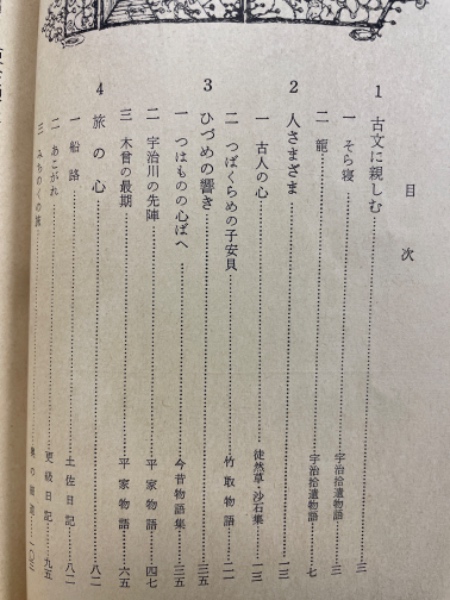 目次
1 古文に親しむ……三
一 そら寝……宇治拾遺物語……三
二 龍……宇治拾遺物語……七
2 人さまざま……一三
一 古人の心……徒然草・沙石集……一三
二 つばくらめの子安貝……竹取物語……二一
3 ひづめの響き……三五
一 つはものの心ばへ……今昔物語集……三五
二 宇治川の先陣……平家物語……四七
三 木曾の最期……平家物語……六五
4 旅の心……八二
一 船路……土佐日記……八二
二 あこがれ……更級日記……九五
三 みちのくの旅……奥の細道……一〇三